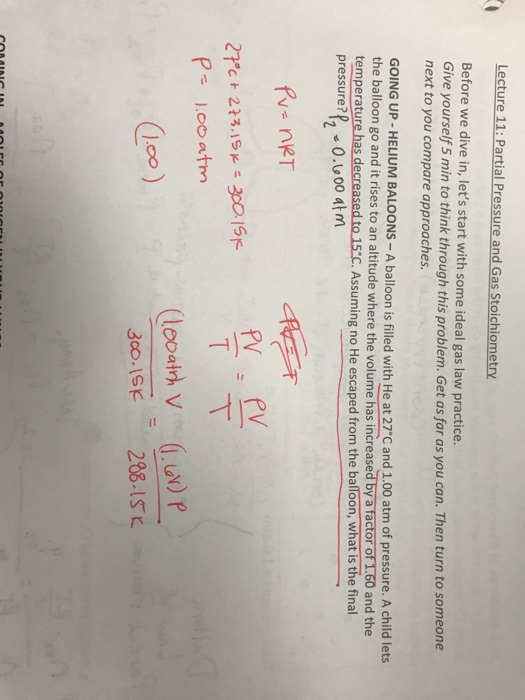 Lecture 11: Partial Pressure and Gas Stoichiometry
Before we dive in, let's start with some ideal gas law practice.
Give yourself 5 min to think through this problem. Get as far as you can. Then turn to someone
next to you compare approaches.
GOING UP - HELIUM BALOONS – A balloon is filled with He at 27°C and 1.00 atm of pressure. A child lets
the balloon go and it rises to an altitude where the volume has increased by a factor of 1.60 and the
temperature has decreased to 15°C. Assuming no He escaped from the balloon, what is the final
pressure? P2 = 0.600 atm
PV = nRT
27°C + 273.15K = 300.15K
P = 1.00 atm
(1.00)
PV/T = PV/T
(1.00atm) V / 300.15K = (1.6V) P / 288.15K